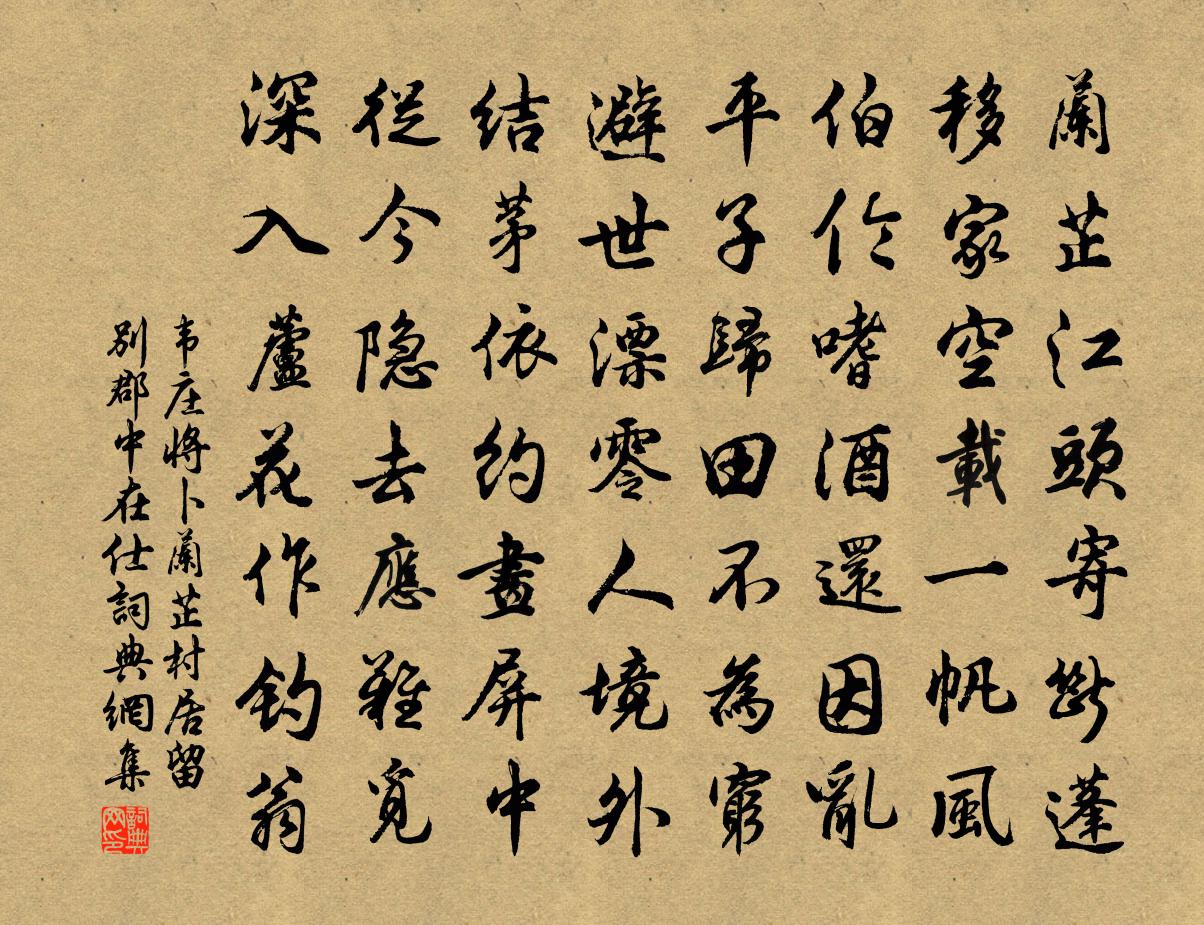 蘭芷江頭寄斷蓬
移家空載一帆風
伯伦嗜酒還因亂
平子歸田不為窮
避世漂零人境外
结茅依约畫屏中
從今隐去應難覓
深入蘆花作钓翁
韦庄將卜蘭芷村居留
别郡中在仕詞典網集
詞典网印